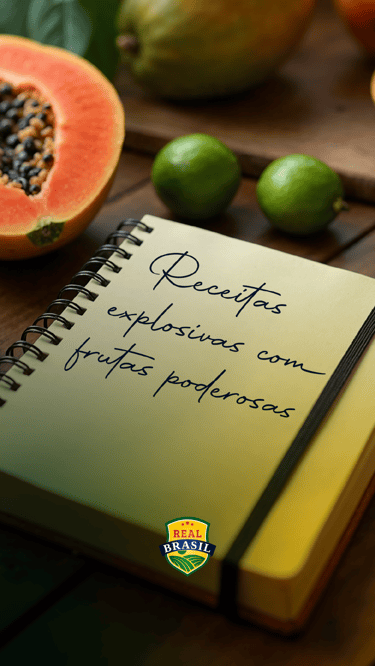 Receitas
explosivas com
frutas poderosas
REAL
BRASIL